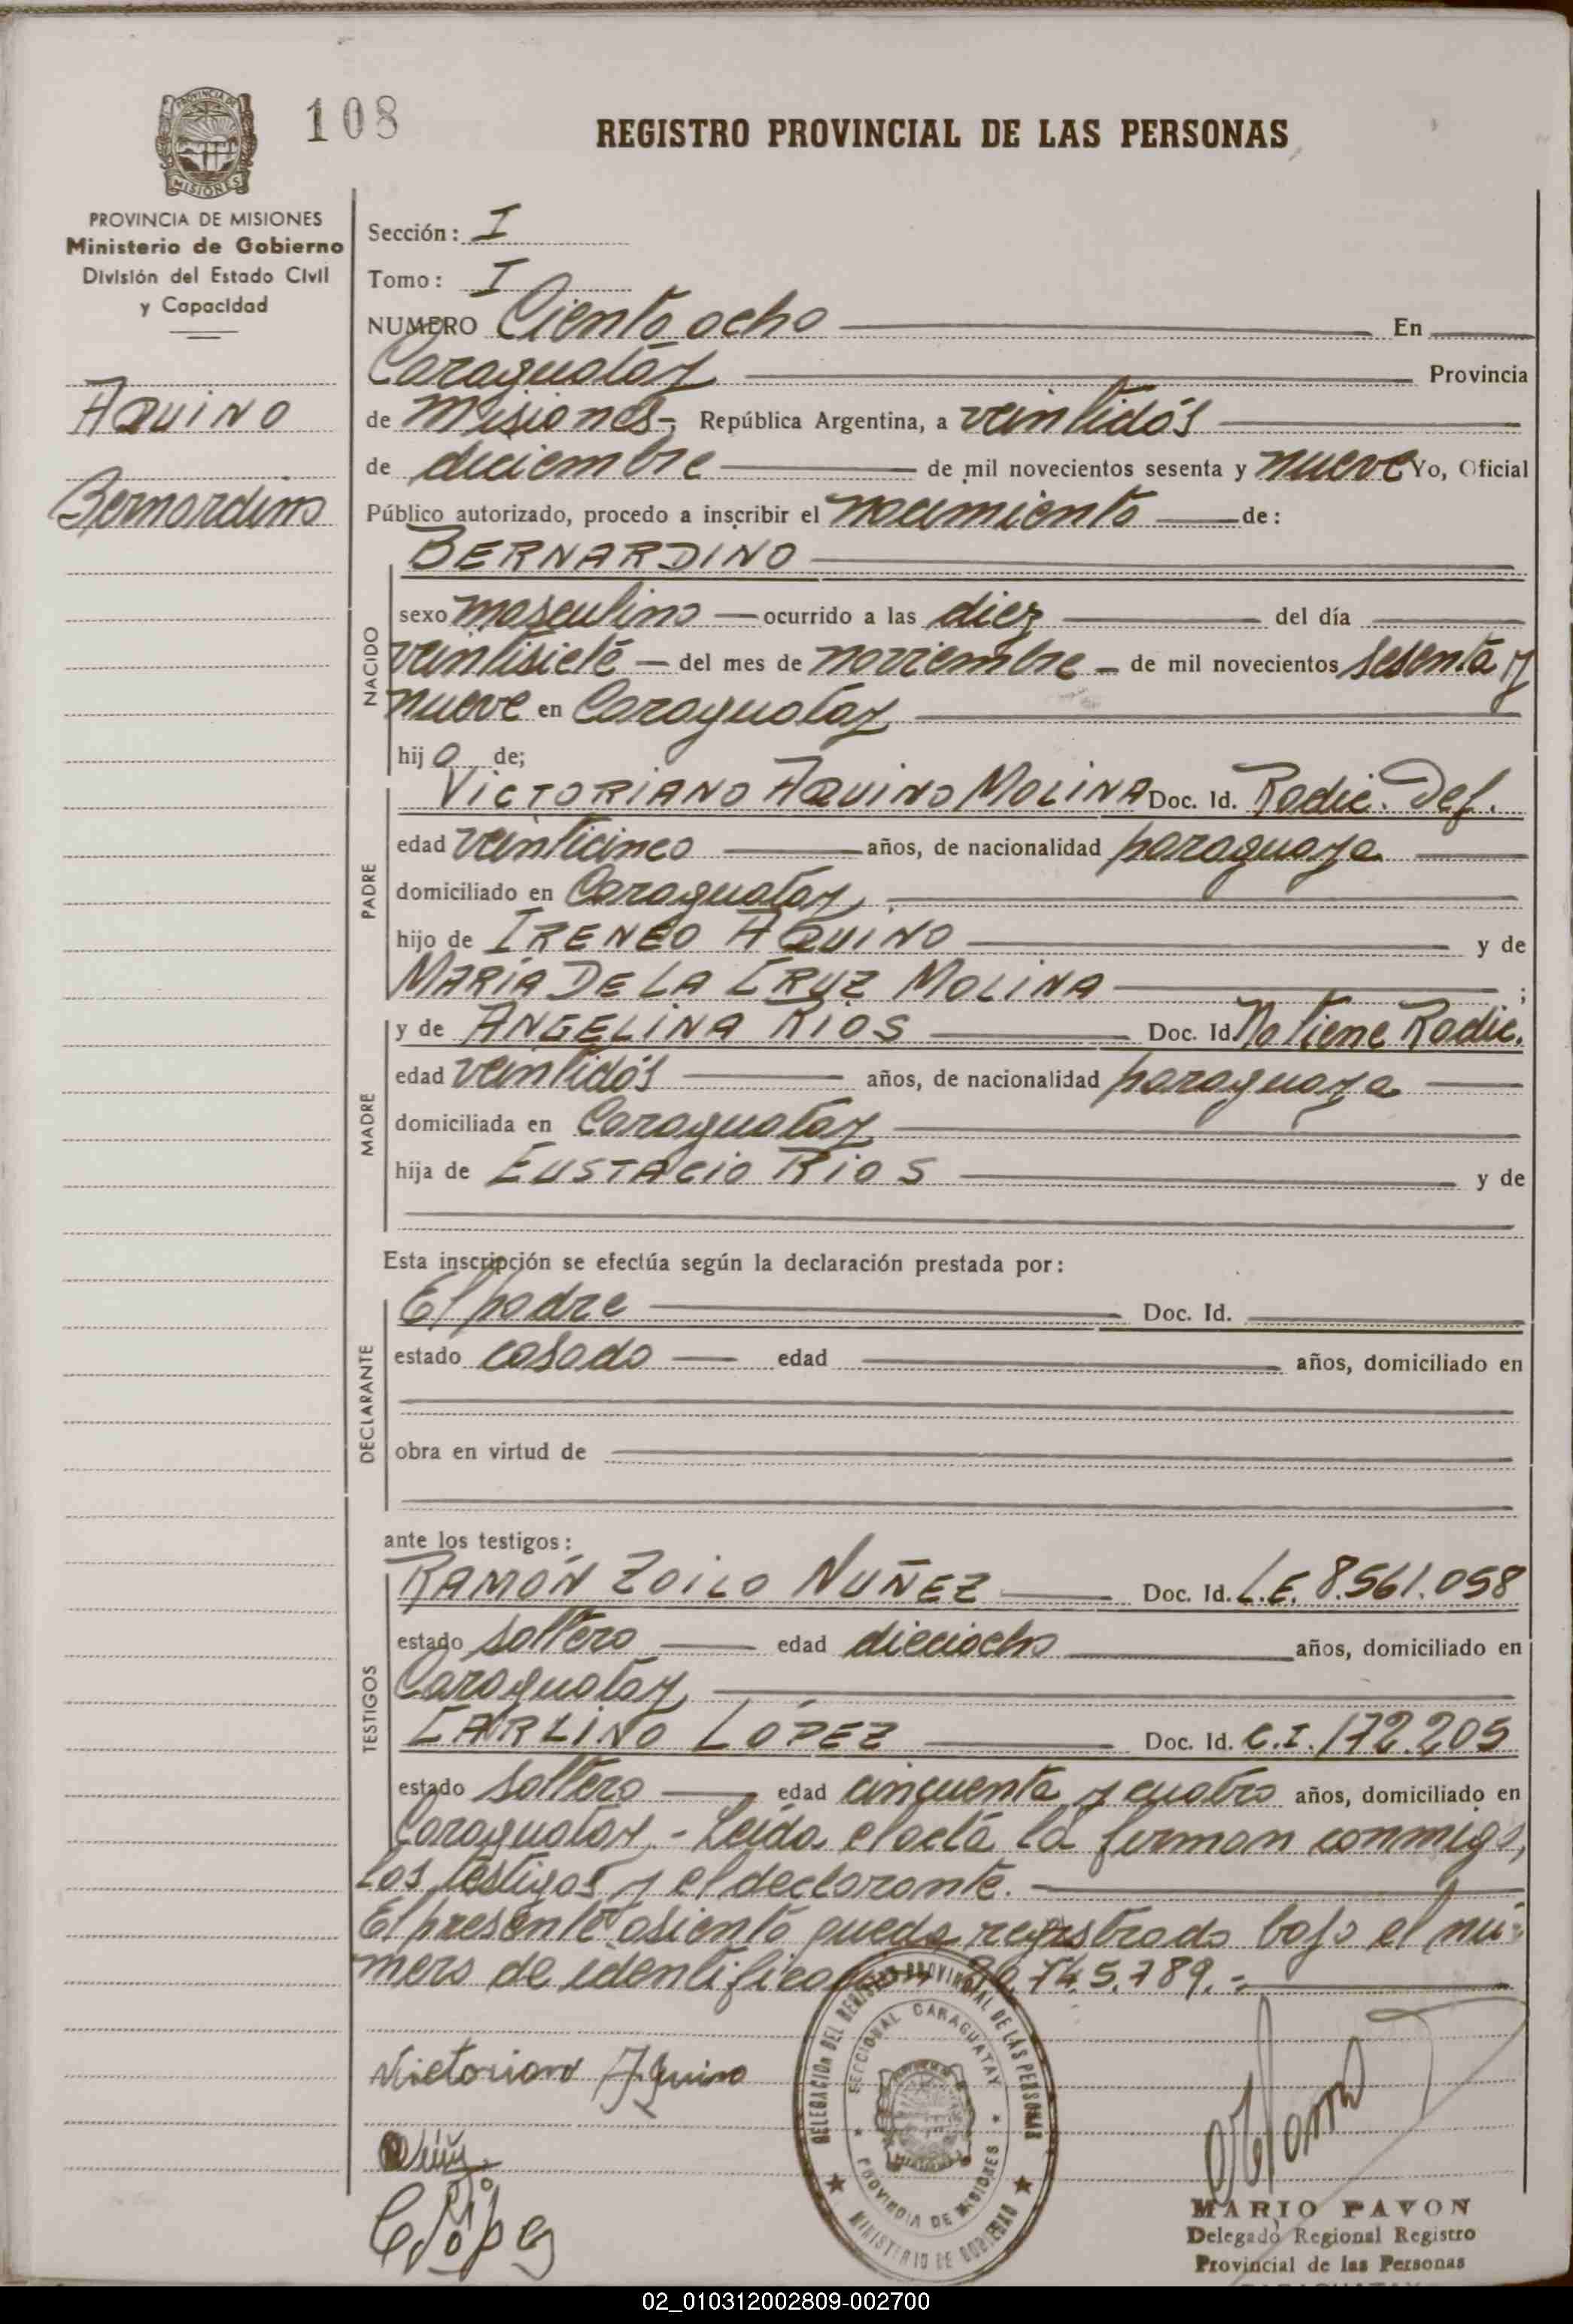 108
REGISTRO PROVINCIAL DE LAS PERSONAS
PROVINCIA DE MISIONES
Ministerio de Gobierno
División del Estado Civil
y Capacidad
AQUINO
Bernardino
Sección: I
Tomo: I
NUMERO Ciento ocho En
Caraguatay Provincia
de Misiones, República Argentina, a veintidós
de diciembre de mil novecientos sesenta y nueve Yo, Oficial
Público autorizado, procedo a inscribir el nacimiento de:
BERNARDINO
NACIDO
sexo masculino ocurrido a las diez del día
veintisiete del mes de noviembre de mil novecientos sesenta y
nueve en Caraguatay
hijo de;
PADRE
VICTORIANO AQUINO MOLINA Doc. Id. Radic. Def.
edad veinticinco años, de nacionalidad paraguaya
domiciliado en Caraguatay
hijo de IRENEO AQUINO y de
MARÍA DE LA CRUZ MOLINA ;
MADRE
y de ANGELINA RIOS Doc. Id. No tiene Radic.
edad veintidós años, de nacionalidad paraguaya
domiciliada en Caraguatay
hija de EUSTACIO RIOS y de
Esta inscripción se efectúa según la declaración prestada por:
DECLARANTE
El padre Doc. Id.
estado casado edad años, domiciliado en
obra en virtud de
ante los testigos:
TESTIGOS
RAMÓN ZOILO NUÑEZ Doc. Id. L.E. 8.561.058
estado soltero edad dieciocho años, domiciliado en
Caraguatay
CARLINO LÓPEZ Doc. Id. C.I. 172.205
estado soltero edad cincuenta y cuatro años, domiciliado en
Caraguatay.- Leída el acta la firman conmigo,
los testigos y el declarante.
El presente asiento queda registrado bajo el nú-
mero de identificación 20.745.789.-
Victoriano Aquino
CLópez
DELEGACION DEL REGISTRO PROVINCIAL DE LAS PERSONAS
SECCIONAL CARAGUATAY
PROVINCIA DE MISIONES
MINISTERIO DE GOBIERNO
MARIO PAVON
Delegado Regional Registro
Provincial de las Personas
02_010312002809-002700